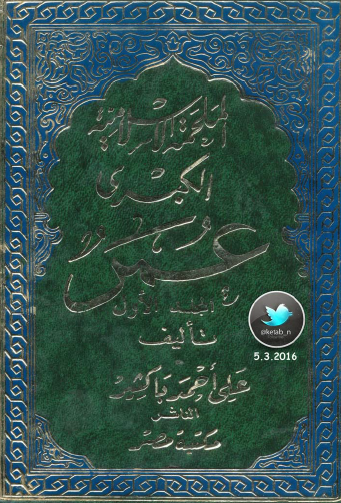 الملحمة الإسلامية
الكبرى
عمر
المجلد الأول
تأليف
علي أحمد باكثير
الناشر
مكتبة مصر
@ketab_n
5.3.2016